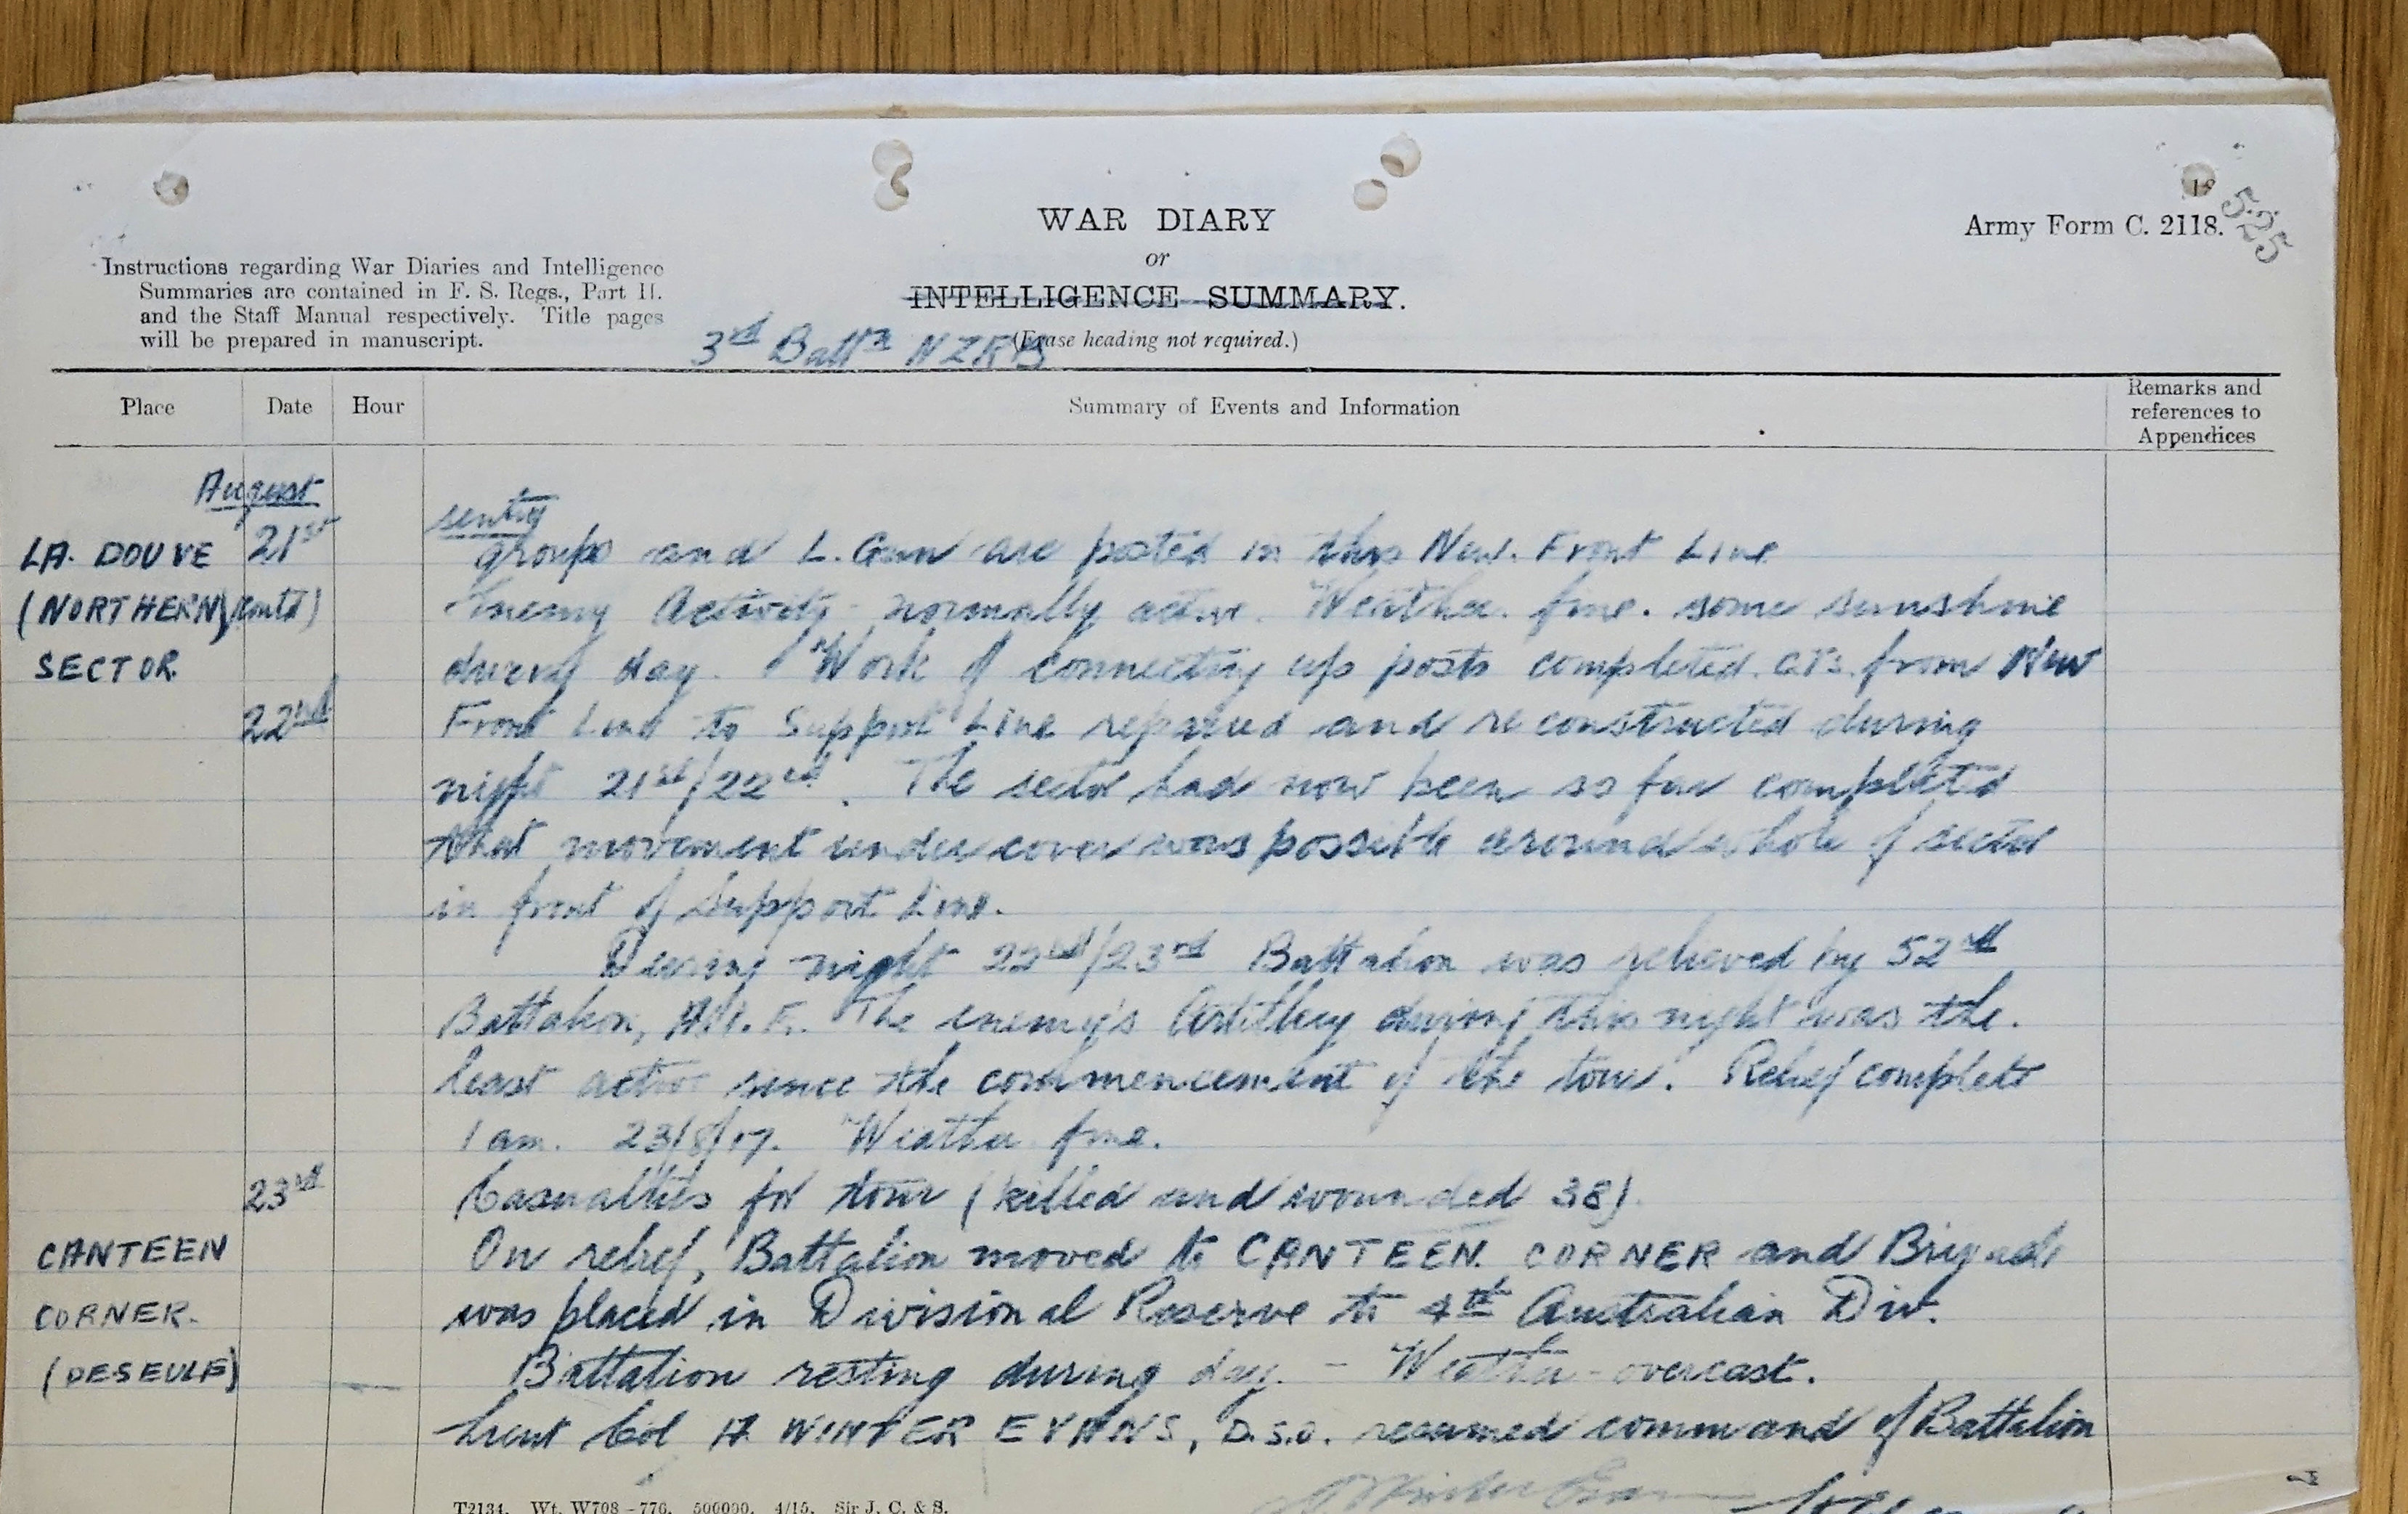 WAR DIARY
or
INTELLIGENCE SUMMARY.
(Erase heading not required.)
Army Form C. 2118.
525
Instructions regarding War Diaries and Intelligence
Summaries are contained in F. S. Regs., Part II.
and the Staff Manual respectively. Title pages
will be prepared in manuscript.
3rd Battn NZRB
Place Date Hour Summary of Events and Information Remarks and
references to
Appendices
August
sentry
LA. DOUVE 21st groups and L. Gun are posted in this New. Front Line
(NORTHERN) (contd) Enemy Activity - normally active. Weather. fine. some sunshine
SECTOR. during day. Work of connecting up posts completed. C.T's. from New
22nd Front Line to Support Line repaired and reconstructed during
night 21st/22nd. The sector had now been so far completed
that movement under cover was possible around whole of sector
in front of Support Line.
During night 22nd/23rd Battalion was relieved by 52nd
Battalion, A.I.F. The enemy's Artillery during this night was the.
least active since the commencement of the tour. Relief complete
1 am. 23/8/17. Weather fine.
23rd Casualties for tour (killed and wounded 38).
CANTEEN On relief, Battalion moved to CANTEEN. CORNER and Brigade
CORNER. was placed in Divisional Reserve to 4th Australian Div.
(DE SEULE) Battalion resting during day. - Weather - overcast.
Lieut Col A. WINTER EVANS, D.S.O. resumed command of Battalion
A Winter Evans
T2134. Wt. W708-776. 500000. 4/15. Sir J. C. & S.